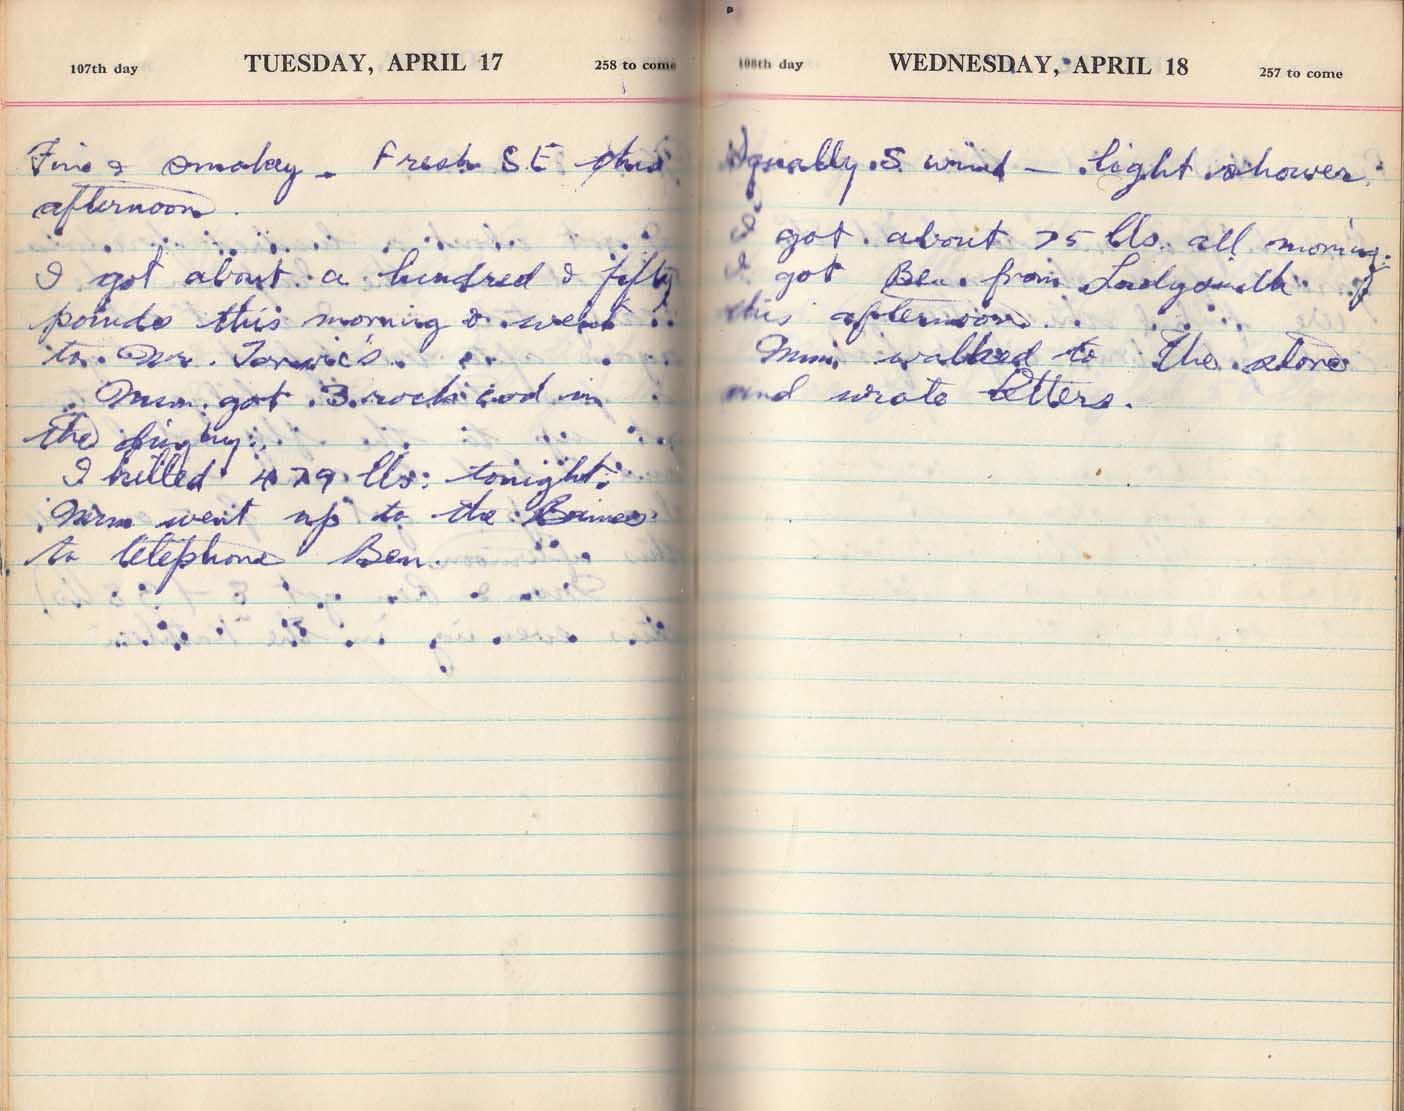 107th day TUESDAY, APRIL 17 258 to come
Fine & smokey - Fresh S.E this
afternoon.
I got about a hundred & fifty
pounds this morning & went
to Mr.
Mum got 3 rock cod in
the dinghy.
I killed 479 lbs. tonight.
Mum went up to the
to telephone Ben.
108th day WEDNESDAY, APRIL 18 257 to come
Squally S wind - light shower.
I got about 75 lbs. all morning.
I got Ben from Ladysmith
this afternoon.
Mum walked to the store
and wrote letters.